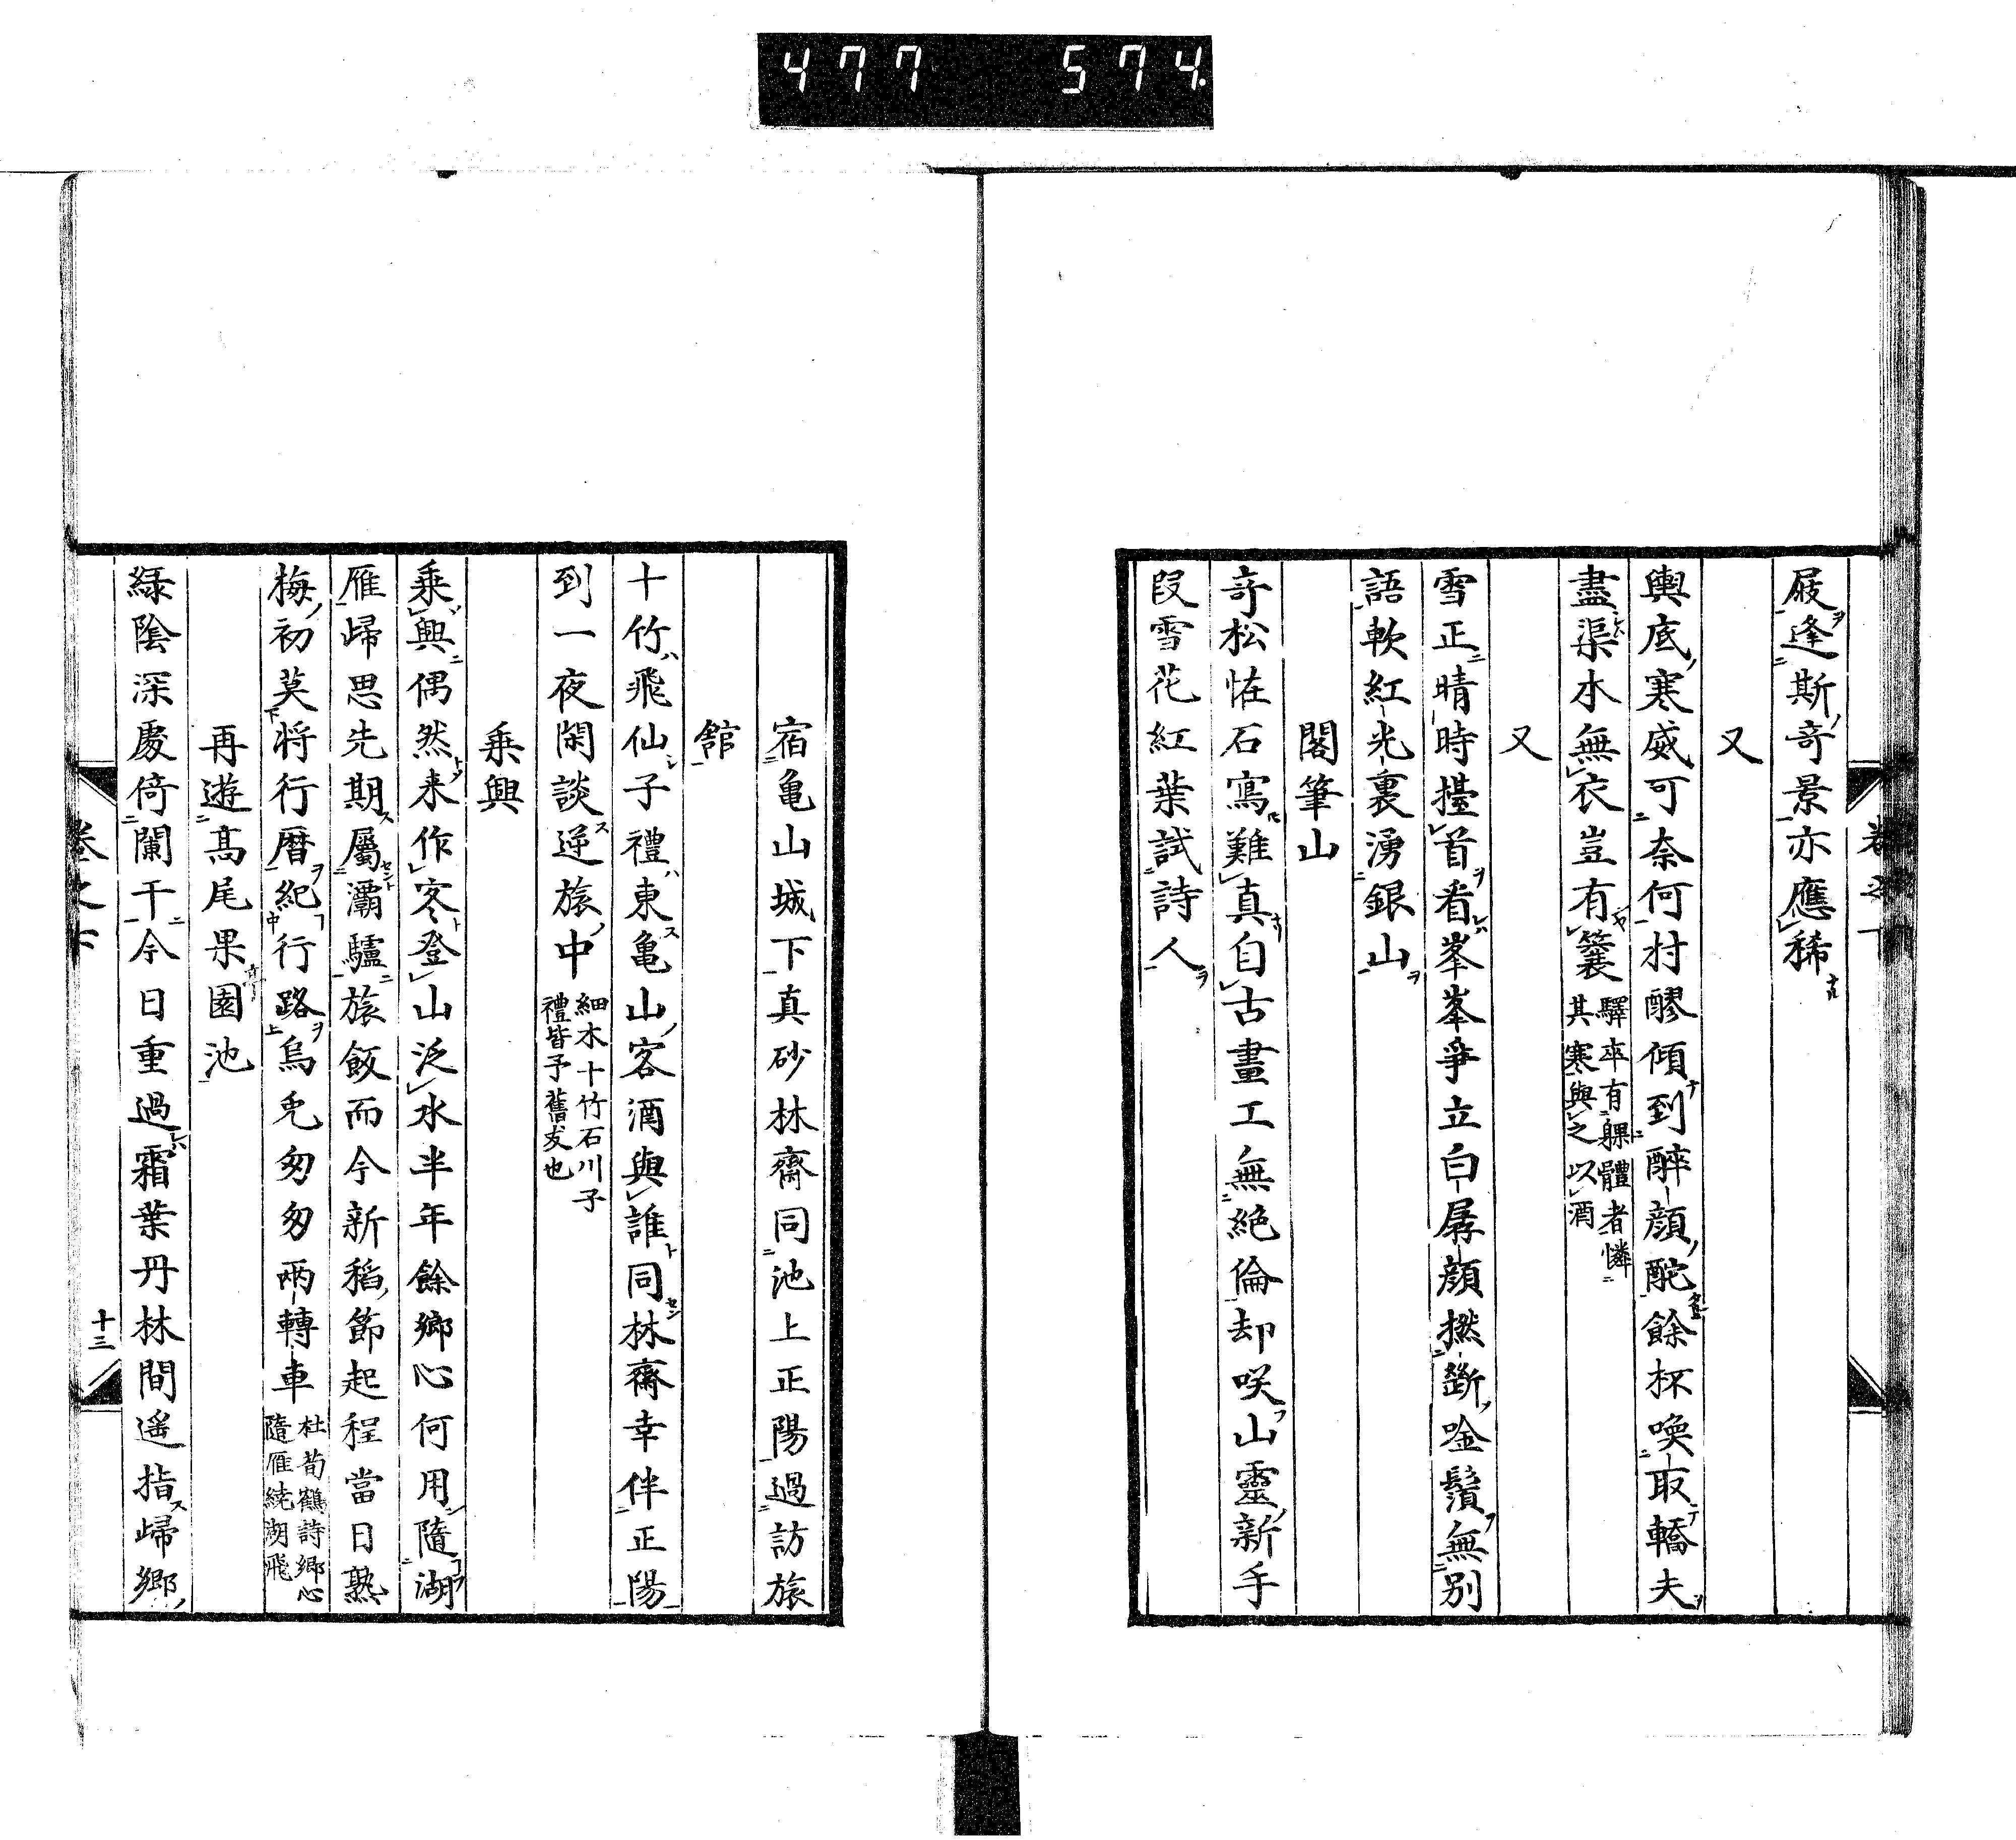 477 574
屐逢斯奇景亦應稀
又
輿底寒威可奈何村醪傾到醉顔酡餘杯喚取轎夫
盡渠水無衣豈有簑 驛卒有躶體者憐
其寒與之以酒
又
雪正晴時擡首看峯峯爭立白孱顔撚斷唫鬚無別
語軟紅光裏湧銀山
閣筆山
竒松恠石寫難真自古畫工無絶倫却咲山靈新手
段雪花紅葉試詩人
宿亀山城下真砂林齋同池上正陽過訪旅
舘
十竹飛仙子禮東亀山客酒與誰同林齋幸伴正陽
到一夜閑談逆旅中 細木十竹石川子
禮皆予舊友也
乗興
乗興偶然来作客登山泛水半年餘鄉心何用隨湖
雁歸思先期屬灞驢旅飯而今新稻節起程當日熟
梅初莫將行曆紀行路烏兎匆匆兩轉車 杜荀鶴詩鄉心
隨雁繞湖飛
再遊髙尾果園池
緑陰深處倚闌干今日重過霜葉丹林間遥指歸鄉
卷之下
十三